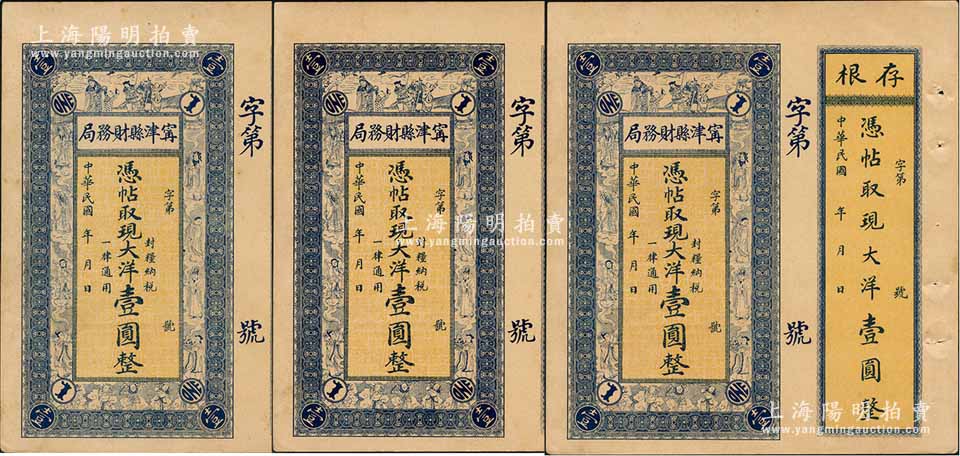 上海陽明拍賣
www.yangmingauction.com
壹
壹
ONE
1
局務財縣津寗
字第 號
憑帖取現大洋壹圓整
封糧納税
一律通用
中華民國 年 月 日
1
ONE
壹
壹
字第 號
壹
壹
ONE
1
局務財縣津寗
字第 號
憑帖取現大洋壹圓整
封糧納税
一律通用
中華民國 年 月 日
1
ONE
壹
壹
字第 號
上海陽明拍賣
www.yangmingauction.com
壹
壹
ONE
1
局務財縣津寗
字第 號
憑帖取現大洋壹圓整
封糧納税
一律通用
中華民國 年 月 日
1
ONE
壹
壹
字第 號
根存
字第 號
憑帖取現大洋壹圓整
中華民國 年 月 日
上海陽明拍賣
www.yangmingauction.com